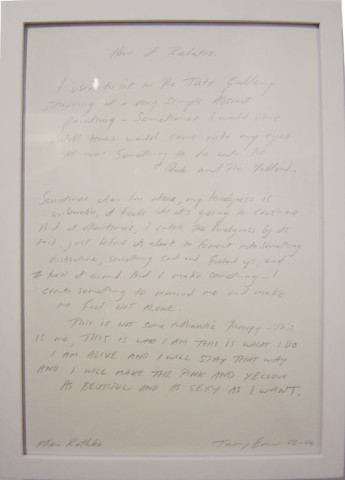 How it Relates.
I used to sit in the Tate Gallery
Staring at a very simple abstract
painting - Sometimes I would
until tears would come into my eyes
It was Something to do with the
Pink and the Yellow.
Sometimes when I'm alone, my loneliness is
unbearable, it feels like it's going to crush me
And at other times, I catch the loneliness by its
tail, just before it about to into something
something sad and up, and
turn it around And I make something - I
create something to remind me and make
me feel NOT ALONE.
This is NOT some Therapy - This
is me, THIS IS WHO I AM THIS IS WHAT I DO
I AM ALIVE AND I WILL STAY THAT WAY
AND I WILL MAKE THE PINK AND YELLOW
AS BEUTIFUL AND AS SEXY AS I WANT.
Rothko
Tracey Emin